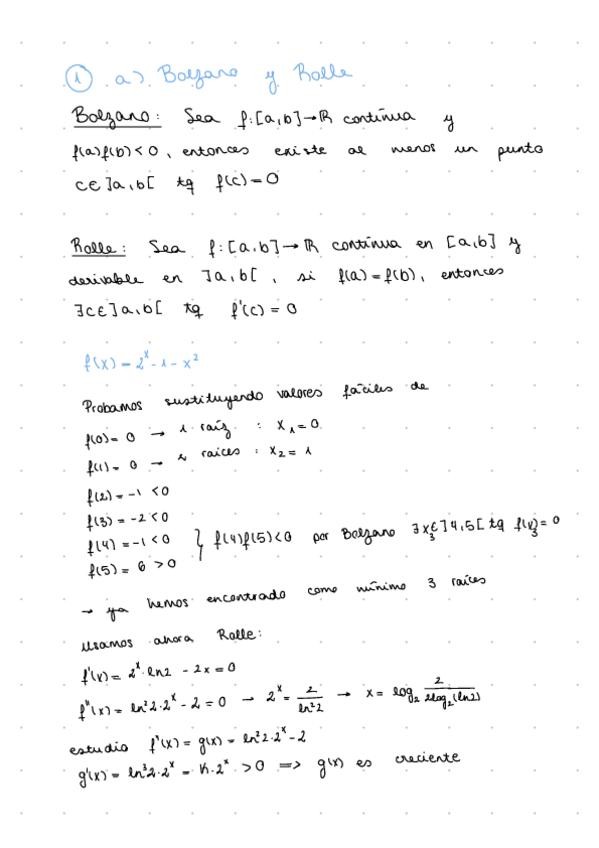 ① a) Bolzano y Rolle
Bolzano: Sea f:[a,b]→ℝ continua y
f(a)f(b)<0, entonces existe al menos un punto
c∈]a,b[ tq f(c)=0
Rolle: Sea f:[a,b]→ℝ continua en [a,b] y
derivable en ]a,b[, si f(a)=f(b), entonces
∃c∈]a,b[ tq f'(c)=0
f(x)=2^x-1-x²
Probamos sustituyendo valores fáciles de
f(0)=0 → 1 raíz : x₁=0
f(1)=0 → 2 raíces : x₂=1
f(2)=-1<0
f(3)=-2<0
f(4)=-1<0 } f(4)f(5)<0 por Bolzano ∃x₃∈]4,5[ tq f(x₃)=0
f(5)=6>0
→ ya hemos encontrado como mínimo 3 raíces
Usamos ahora Rolle:
f'(x)=2^x·ln2-2x=0
f''(x)=ln²2·2^x-2=0 → 2^x=2/ln²2 → x=log₂ 2/2log₂(ln2)
estudio f''(x)=g(x)=ln²2·2^x-2
g'(x)=ln³2·2^x=K·2^x>0 ⇒ g(x) es creciente